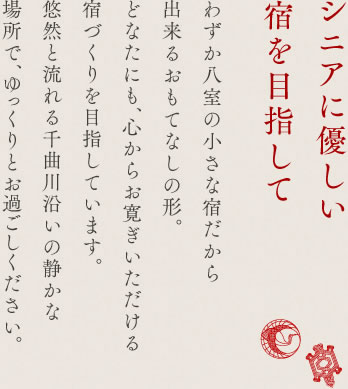 シニアに優しい
宿を目指して
わずか八室の小さな宿だから
出来るおもてなしの形。
どなたにも、心からお寛ぎいただける
宿づくりを目指しています。
悠然と流れる千曲川沿いの静かな
場所で、ゆっくりとお過ごしください。